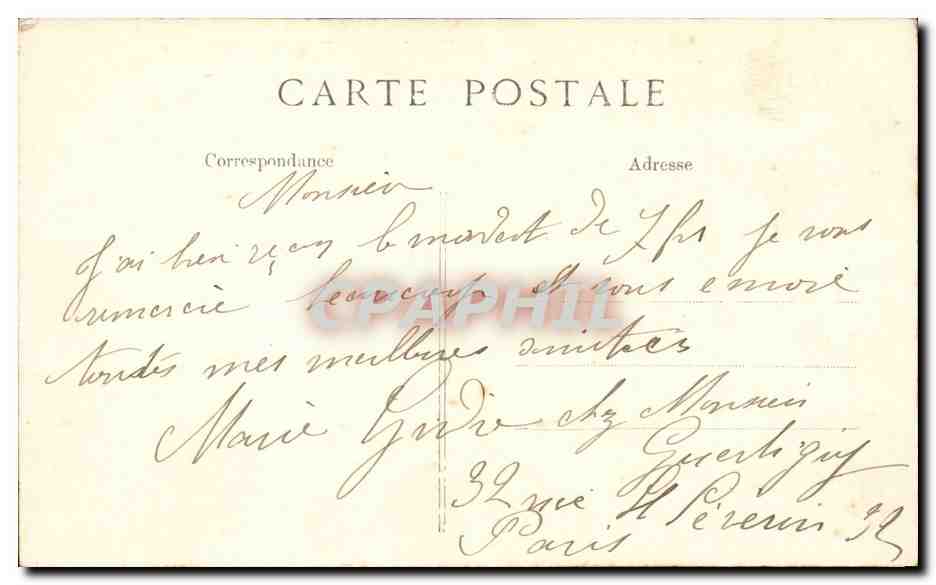 CARTE POSTALE
Correspondance
Adresse
Monsieur
J'ai bien reçu le mandat de 7 frs je vous
remercie beaucoup et vous envoie
toutes mes meilleures amitiés
Marie chez Monsieur
32 rue St Séverin 32
Paris
CPAPHIL